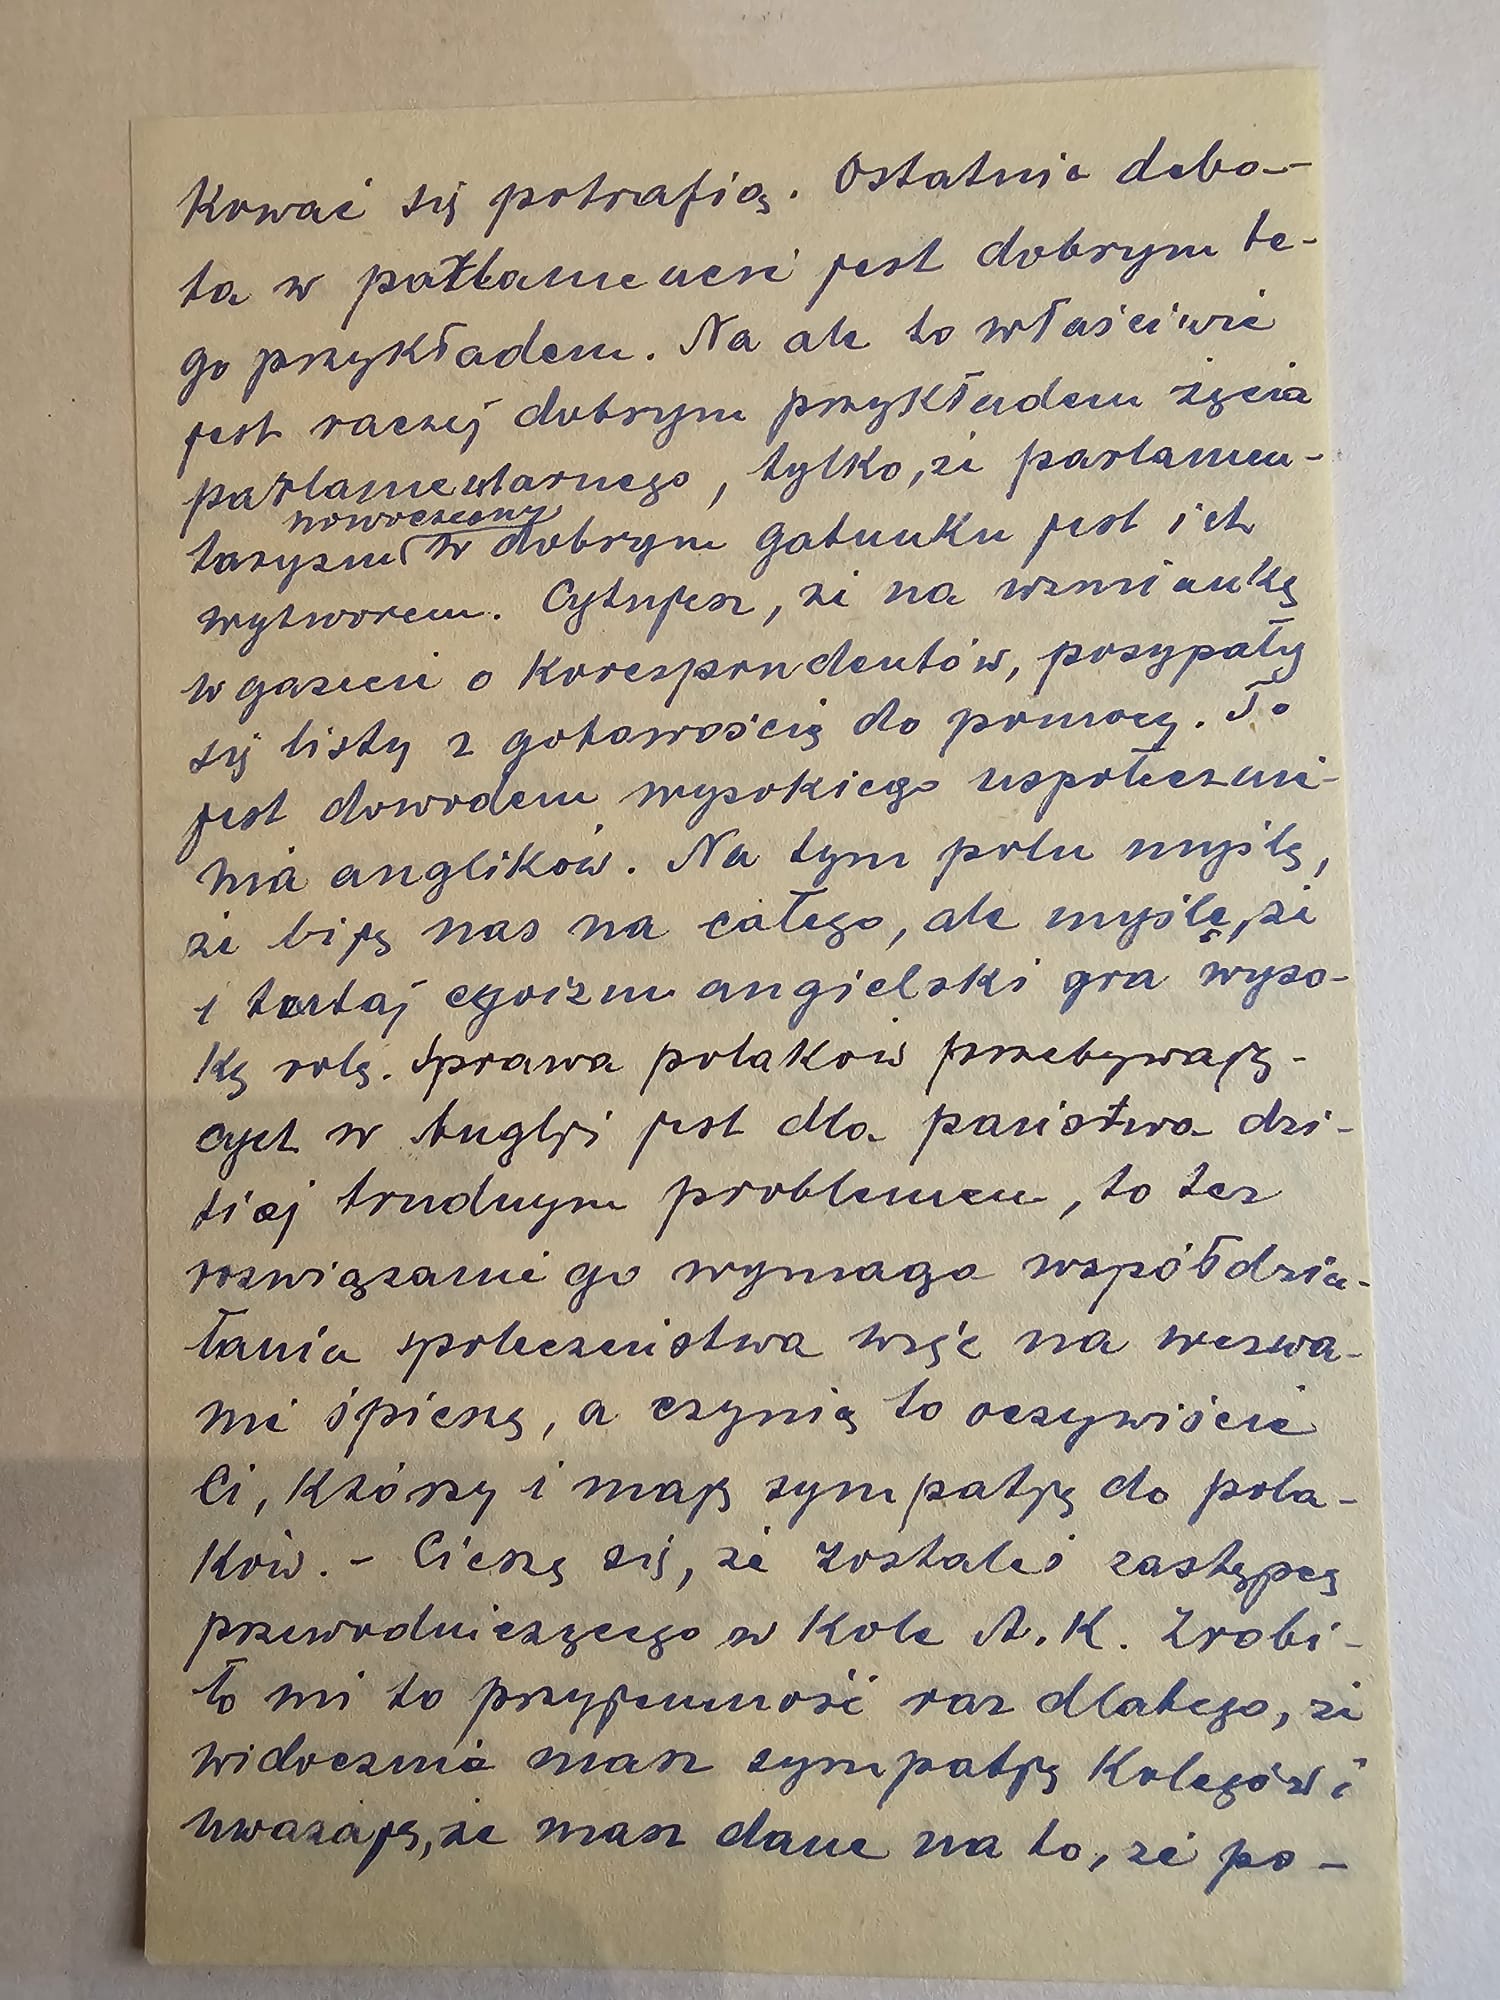 kować się potrafią. Ostatnia deba-
ta w parlamencie jest dobrym te-
go przykładem. Na ale to właściwie
jest raczej dobrym przykładem życia
parlamentarnego, tylko, że parlamen-
nowoczesny
taryzm w dobrym gatunku jest ich
wytworem. Cytujesz, że na wzmiankę
w gazecie o korespondentów, posypały
się listy z gotowością do pomocy. To
jest dowodem wysokiego uspołecznie-
nia anglików. Na tym polu myślę,
że biją nas na całego, ale myślę, że
i tutaj egoizm angielski gra wyso-
ką rolę. Sprawa polaków przebywają-
cych w Anglji jest dla państwa dzi-
siaj trudnym problemem, to też
rozwiązanie go wymaga współdzia-
łania społeczeństwa więc na wezwa-
nie śpieszą, a czynią to oczywiście
Ci, którzy i mają sympatję do pola-
ków. - Cieszę się, że zostałeś zastępcą
przewodniczącego w Kole A.K. Zrobi-
ło mi to przyjemność raz dlatego, że
widocznie masz sympatję Kolegów i
uważają, że masz dane na to, że po-